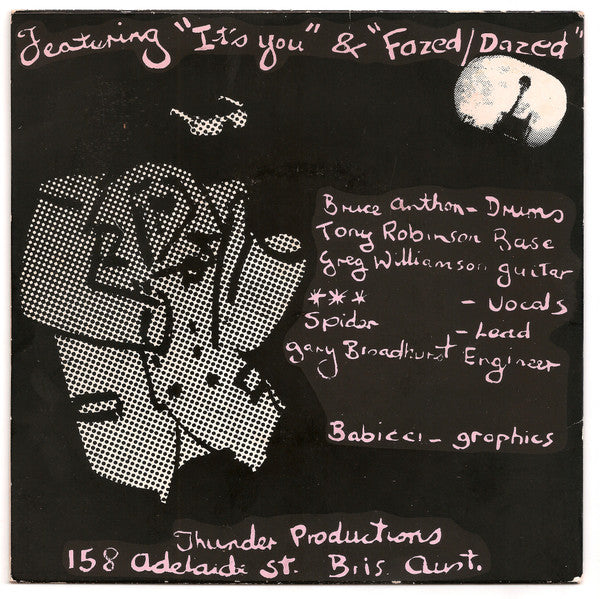 Featuring "It's you" & "Fazed/Dazed"
Bruce Anthon - Drums
Tony Robinson Base
Greg Williamson guitar
*** - Vocals
Spider - Lead
Gary Broadhurst Engineer
Babicci - graphics
Thunder Productions
158 Adelaide St. Bris. Aust.